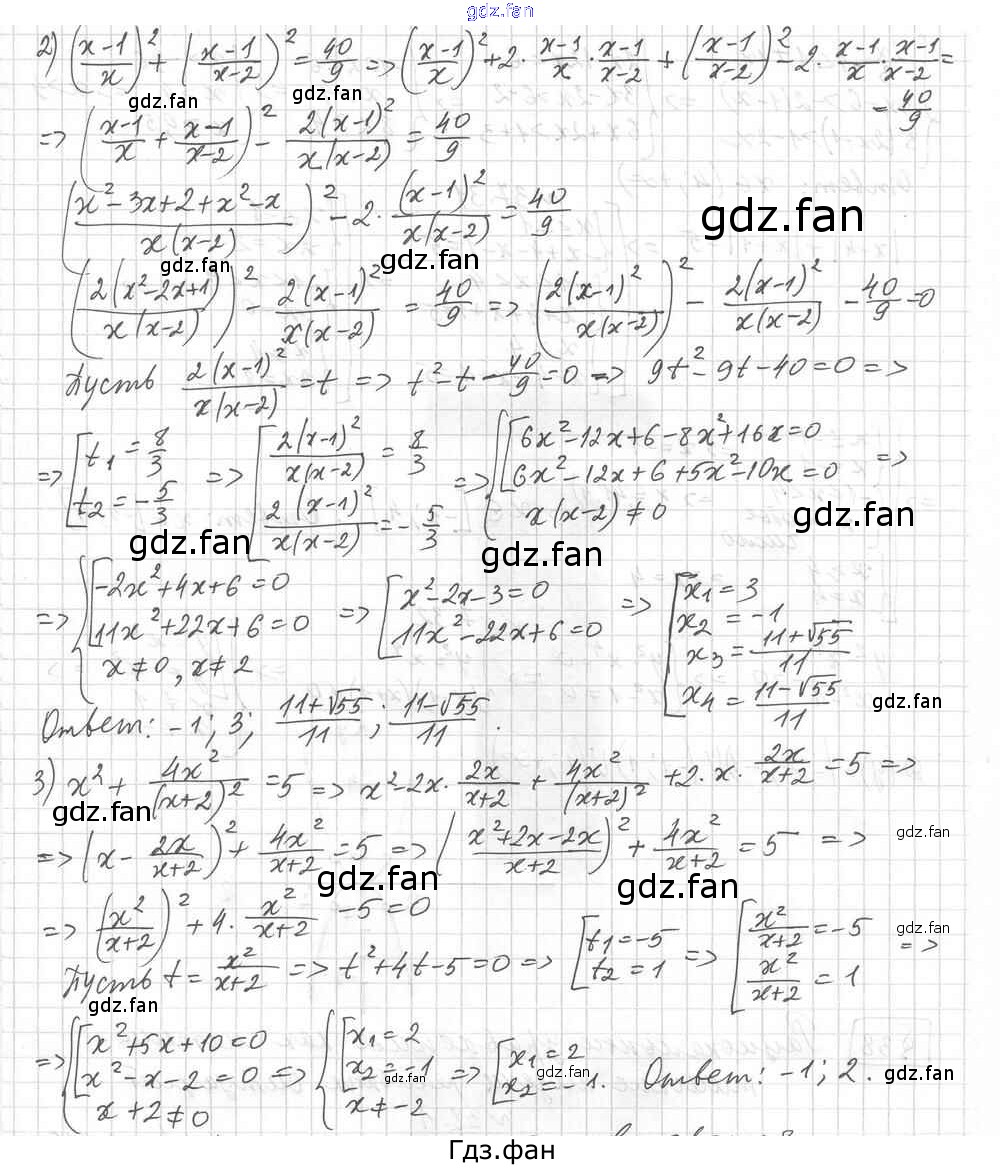 gdz.fan
2) ((x-1)/x)² + ((x-1)/(x-2))² = 40/9 => ((x-1)/x)² + 2· (x-1)/x · (x-1)/(x-2) + ((x-1)/(x-2))² - 2· (x-1)/x · (x-1)/(x-2) =
= 40/9
gdz.fan
=> ((x-1)/x + (x-1)/(x-2))² - 2(x-1)²/(x(x-2)) = 40/9
((x²-3x+2+x²-x)/(x(x-2)))² - 2· (x-1)²/(x(x-2)) = 40/9
gdz.fan
gdz.fan
gdz.fan
(2(x²-2x+1)/(x(x-2)))² - 2(x-1)²/(x(x-2)) = 40/9 => (2(x-1)²/(x(x-2)))² - 2(x-1)²/(x(x-2)) - 40/9 = 0
Пусть 2(x-1)²/(x(x-2)) = t => t² - t - 40/9 = 0 => 9t² - 9t - 40 = 0 =>
=> [t₁ = 8/3 t₂ = -5/3 => [2(x-1)²/(x(x-2)) = 8/3 2(x-1)²/(x(x-2)) = -5/3 => {[6x²-12x+6-8x²+16x=0 6x²-12x+6+5x²-10x=0 x(x-2)≠0 =>
gdz.fan
gdz.fan
gdz.fan
=> {[-2x²+4x+6=0 11x²+22x+6=0 x≠0, x≠2 => [x²-2x-3=0 11x²-22x+6=0 => [x₁=3 x₂=-1 x₃=(11+√55)/11 x₄=(11-√55)/11
gdz.fan
Ответ: -1; 3; (11+√55)/11; (11-√55)/11.
3) x² + 4x²/(x+2)² = 5 => x² - 2x· 2x/(x+2) + 4x²/(x+2)² + 2·x· 2x/(x+2) = 5 =>
gdz.fan
gdz.fan
=> (x - 2x/(x+2))² + 4x²/(x+2) = 5 => ((x²+2x-2x)/(x+2))² + 4x²/(x+2) = 5 =>
gdz.fan
gdz.fan
gdz.fan
=> (x²/(x+2))² + 4· x²/(x+2) - 5 = 0
Пусть t = x²/(x+2) => t²+4t-5=0 => [t₁=-5 t₂=1 => [x²/(x+2) = -5 x²/(x+2) = 1 =>
gdz.fan
gdz.fan
gdz.fan
=> {[x²+5x+10=0 x²-x-2=0 x+2≠0 => {[x₁=2 x₂=-1 x≠-2 => [x₁=2 x₂=-1. Ответ: -1; 2.
gdz.fan
gdz.fan
gdz.fan
gdz.fan
Гдз.фан